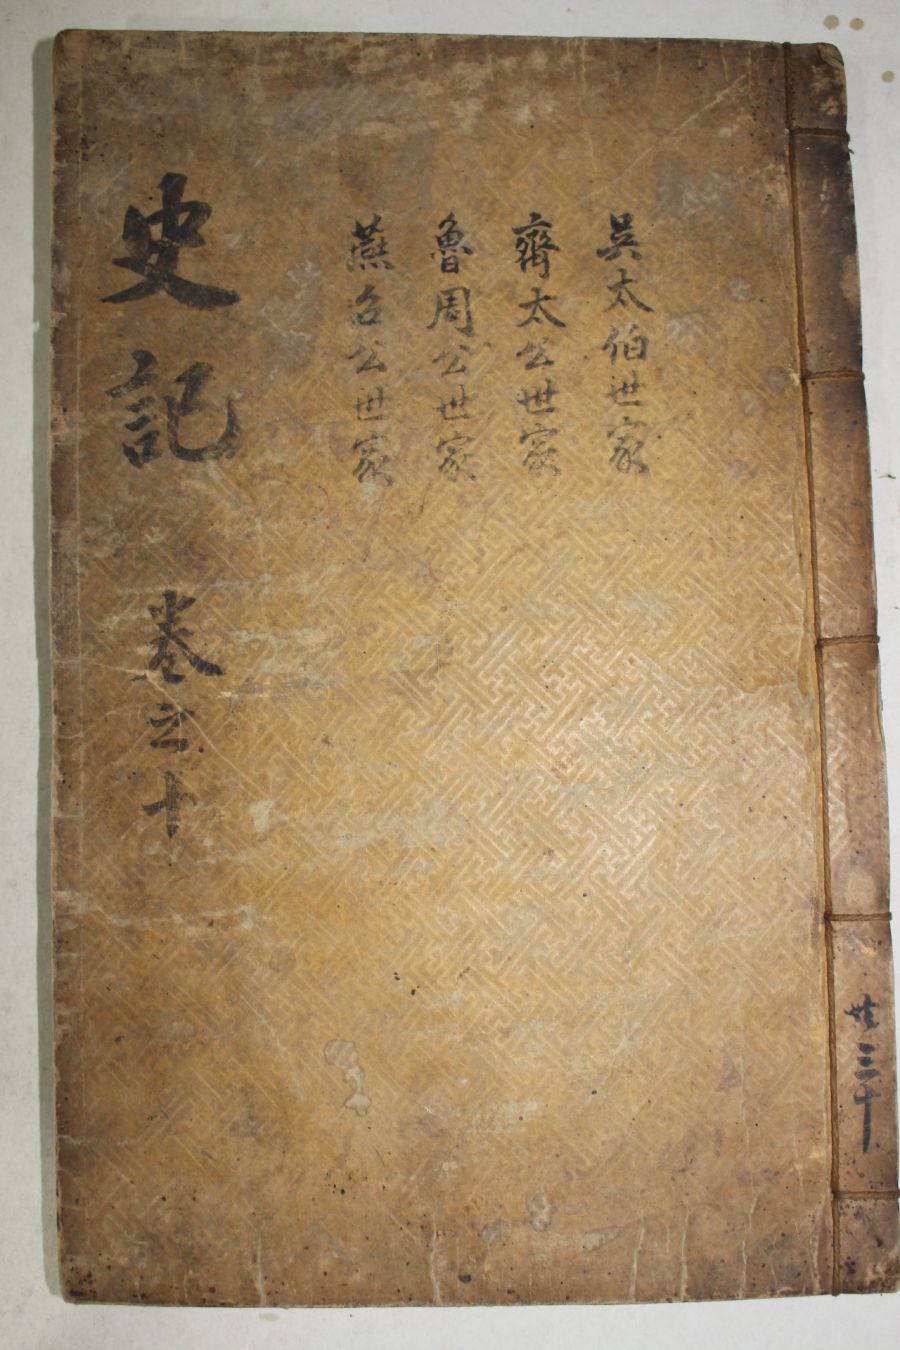 吳太伯世家
齊太公世家
魯周公世家
燕召公世家
史記 卷之十
共三十